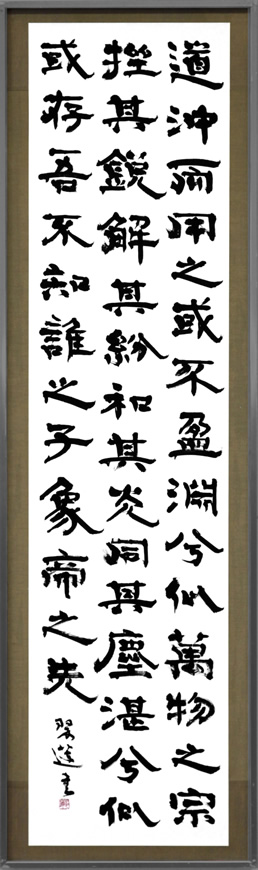 道沖而用之或不盈淵兮似萬物之宗
挫其鋭解其紛和其光同其塵湛兮似
或存吾不知誰之子象帝之先